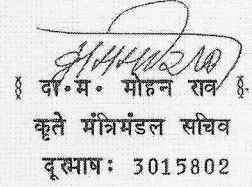 § दी॰म॰ मोहन राव §
कृते मंत्रिमंडल सचिव
दूरभाष: 3015802